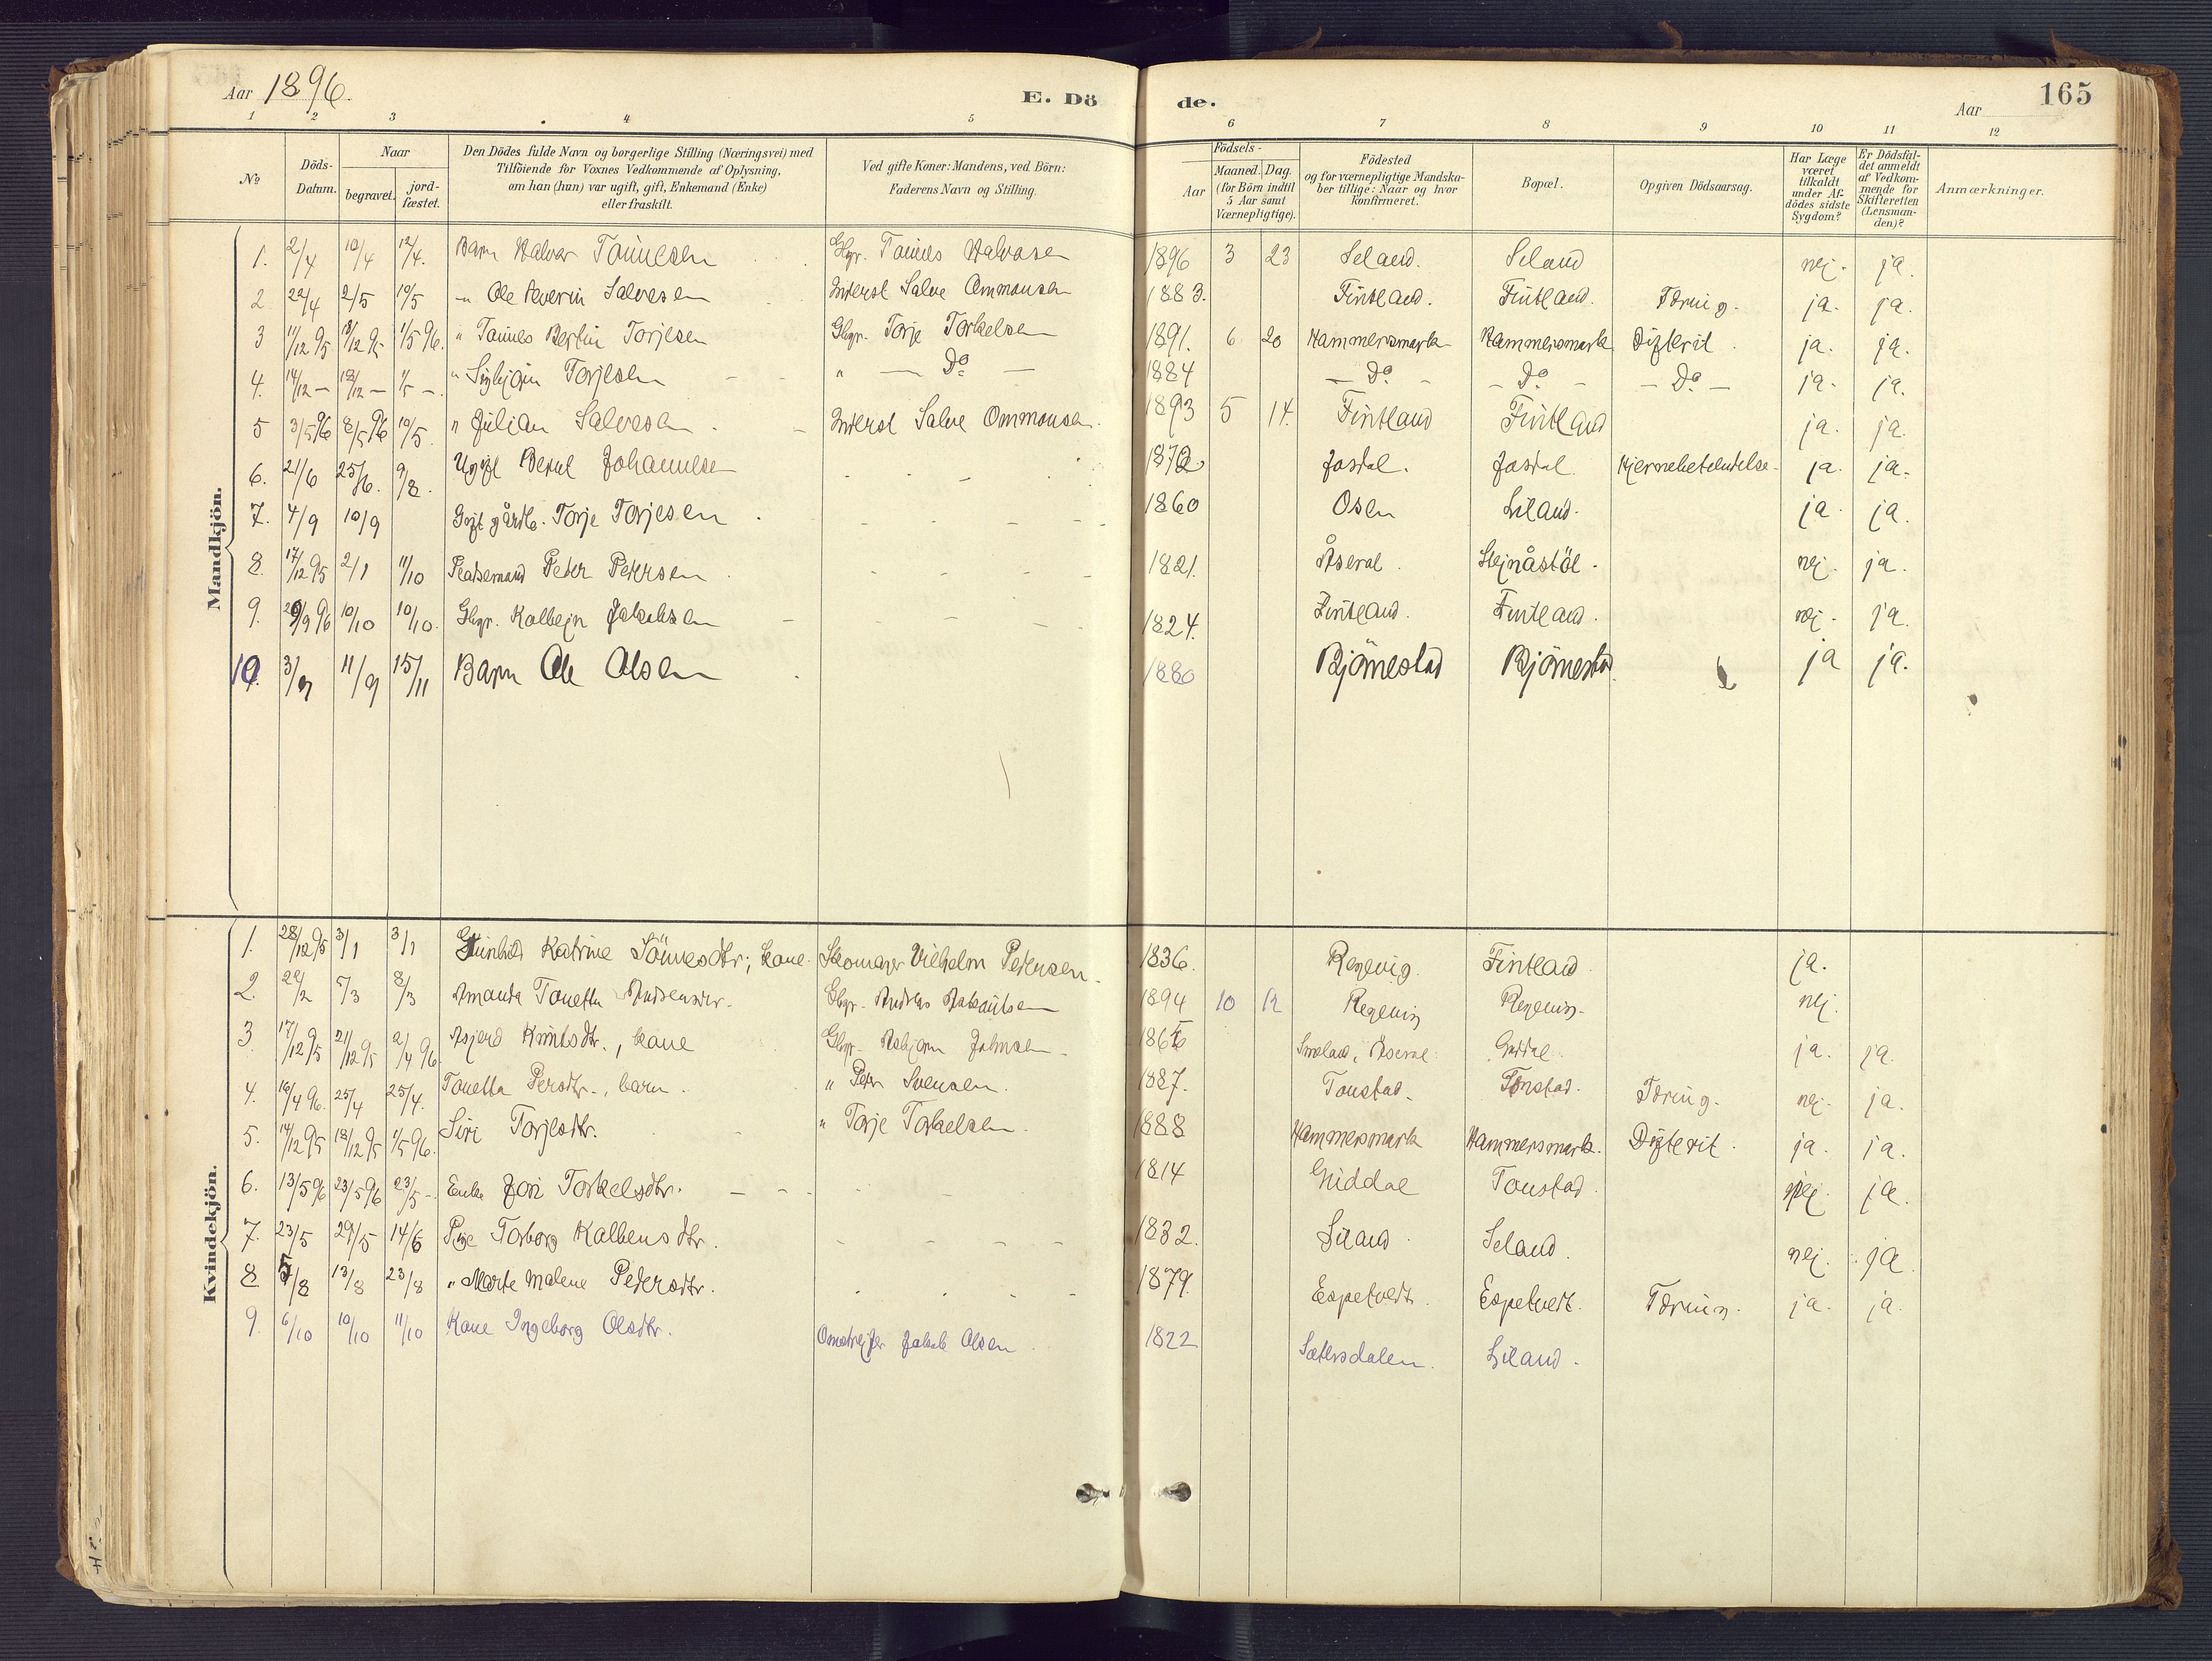 Aar 1896.
E. Dö
de.
Aar
165
1 2 3 4 5 6 7 8 9 10 11 12
No
Döds-Datum.
Naar
begravet.
jord-fæstet.
Den Dödes fulde Navn og borgerlige Stilling (Næringsvei) med
Tilföiende for Voxnes Vedkommende af Oplysning,
om han (hun) var ugift, gift, Enkemand (Enke)
eller fraskilt.
Ved gifte Koner: Mandens, ved Börn:
Faderens Navn og Stilling.
Födsels-
Aar
Maaned. Dag.
(for Börn indtil
5 Aar samt
Værnepligtige).
Födested
og for værnepligtige Mandska-
ber tillige: Naar og hvor
konfirmeret.
Bopæl.
Opgiven Dödsaarsag.
Har Læge
været
tilkaldt
under Af-
dödes sidste
Sygdom?
Er Dödsfal-
det anmeldt
af Vedkom-
mende for
Skifteretten
(Lensman-
den)?
Anmærkninger.
Mandkjön.
1. 2/4 10/4 12/4. Barn Halvor Tönnesen Gbgr. Tönnes Halvorsen 1896 3 23 Seland. Seland nej. ja.
2 22/4 2/5 10/5 " Ole Severin Salvesen Inderst Salve Ommonsen 1883. Fintland. Fintland. Tæring. ja. ja.
3 11/12 95 18/12 95 1/5 96. " Tönnes Bertin Torjesen Gbgr. Torje Torkelsen 1891. 6 20 Hammersmark Hammersmark Difterit. ja. ja.
4. 14/12 — 18/12 — 1/5 —. " Sigbjörn Torjesen " — Do — 1884 — Do — — Do — — Do — ja. ja.
5 3/5 96 8/5 96 10/5. " Julian Salvesen Inderst Salve Ommonsen. 1893 5 14. Fintland Fintland ja. ja.
6. 21/6 25/6. 9/8. Ugift Bernt Johannesen 1872 Josdal. Josdal. Hjernebetendelse. ja. ja.
7. 4/9 10/9 Gift gårdb. Torje Torjesen 1860 Osen Liland. ja. ja.
8. 17/12 95 2/1 11/10 Pladsemand Peder Pedersen 1821. Åseral. Stejnåstöl. nej. ja.
9. 29/9 96 10/10 10/10. Gbgr. Kolbejn Jakobsen 1824. Fintland. Fintland. nej. ja.
10. 3/9 11/9 15/11 Barn Ole Olsen 1880 Bjömestad Bjömestad. ja ja.
Kvindekjön.
1. 28/12 95 3/1 3/1 Gunhild Katrine Tönnesdtr; kone. Skomager Vilhelm Pedersen. 1836. Regevig. Fintland. ja.
2. 22/2 5/3 8/3 Amanda Tonette Gbgr. Andreas 1894 10 12 Regevig Regevig. nej.
3. 17/12 95 21/12 95 2/4 96. Asjerd Knutsdtr., kone Gbgr. Asbjörn Johnsen. Åseral Guddal. ja. ja.
4. 19/4 96. 25/4 25/4. Tonette Persdtr., barn. " Peder Svensen. 1887. Tonstad. Tonstad. Tæring. nej. ja.
5. 14/12 95 18/12 95 1/5 96. Siri Torjesdtr. " Torje Torkelsen. 1888 Hammersmark Hammersmark. Difterit. ja. ja.
6. 13/5 96 23/5 96 23/5 — Enke Jori Torkelsdtr. 1814 Guddal Tonstad. nej. ja.
7. 23/5 29/5 14/6 Pige Torborg Kolbensdtr. 1832. Liland. Seland. nej. ja.
8 5/8 13/8 23/8 " Marte Malene Pedersdtr. 1879. Espetvedt. Espetvedt. Tæring. ja. ja.
9. 6/10 10/10 11/10 Kone Ingeborg Olsdtr. Omstrejfer Jakob Olsen. 1822 Sætersdalen. Liland.